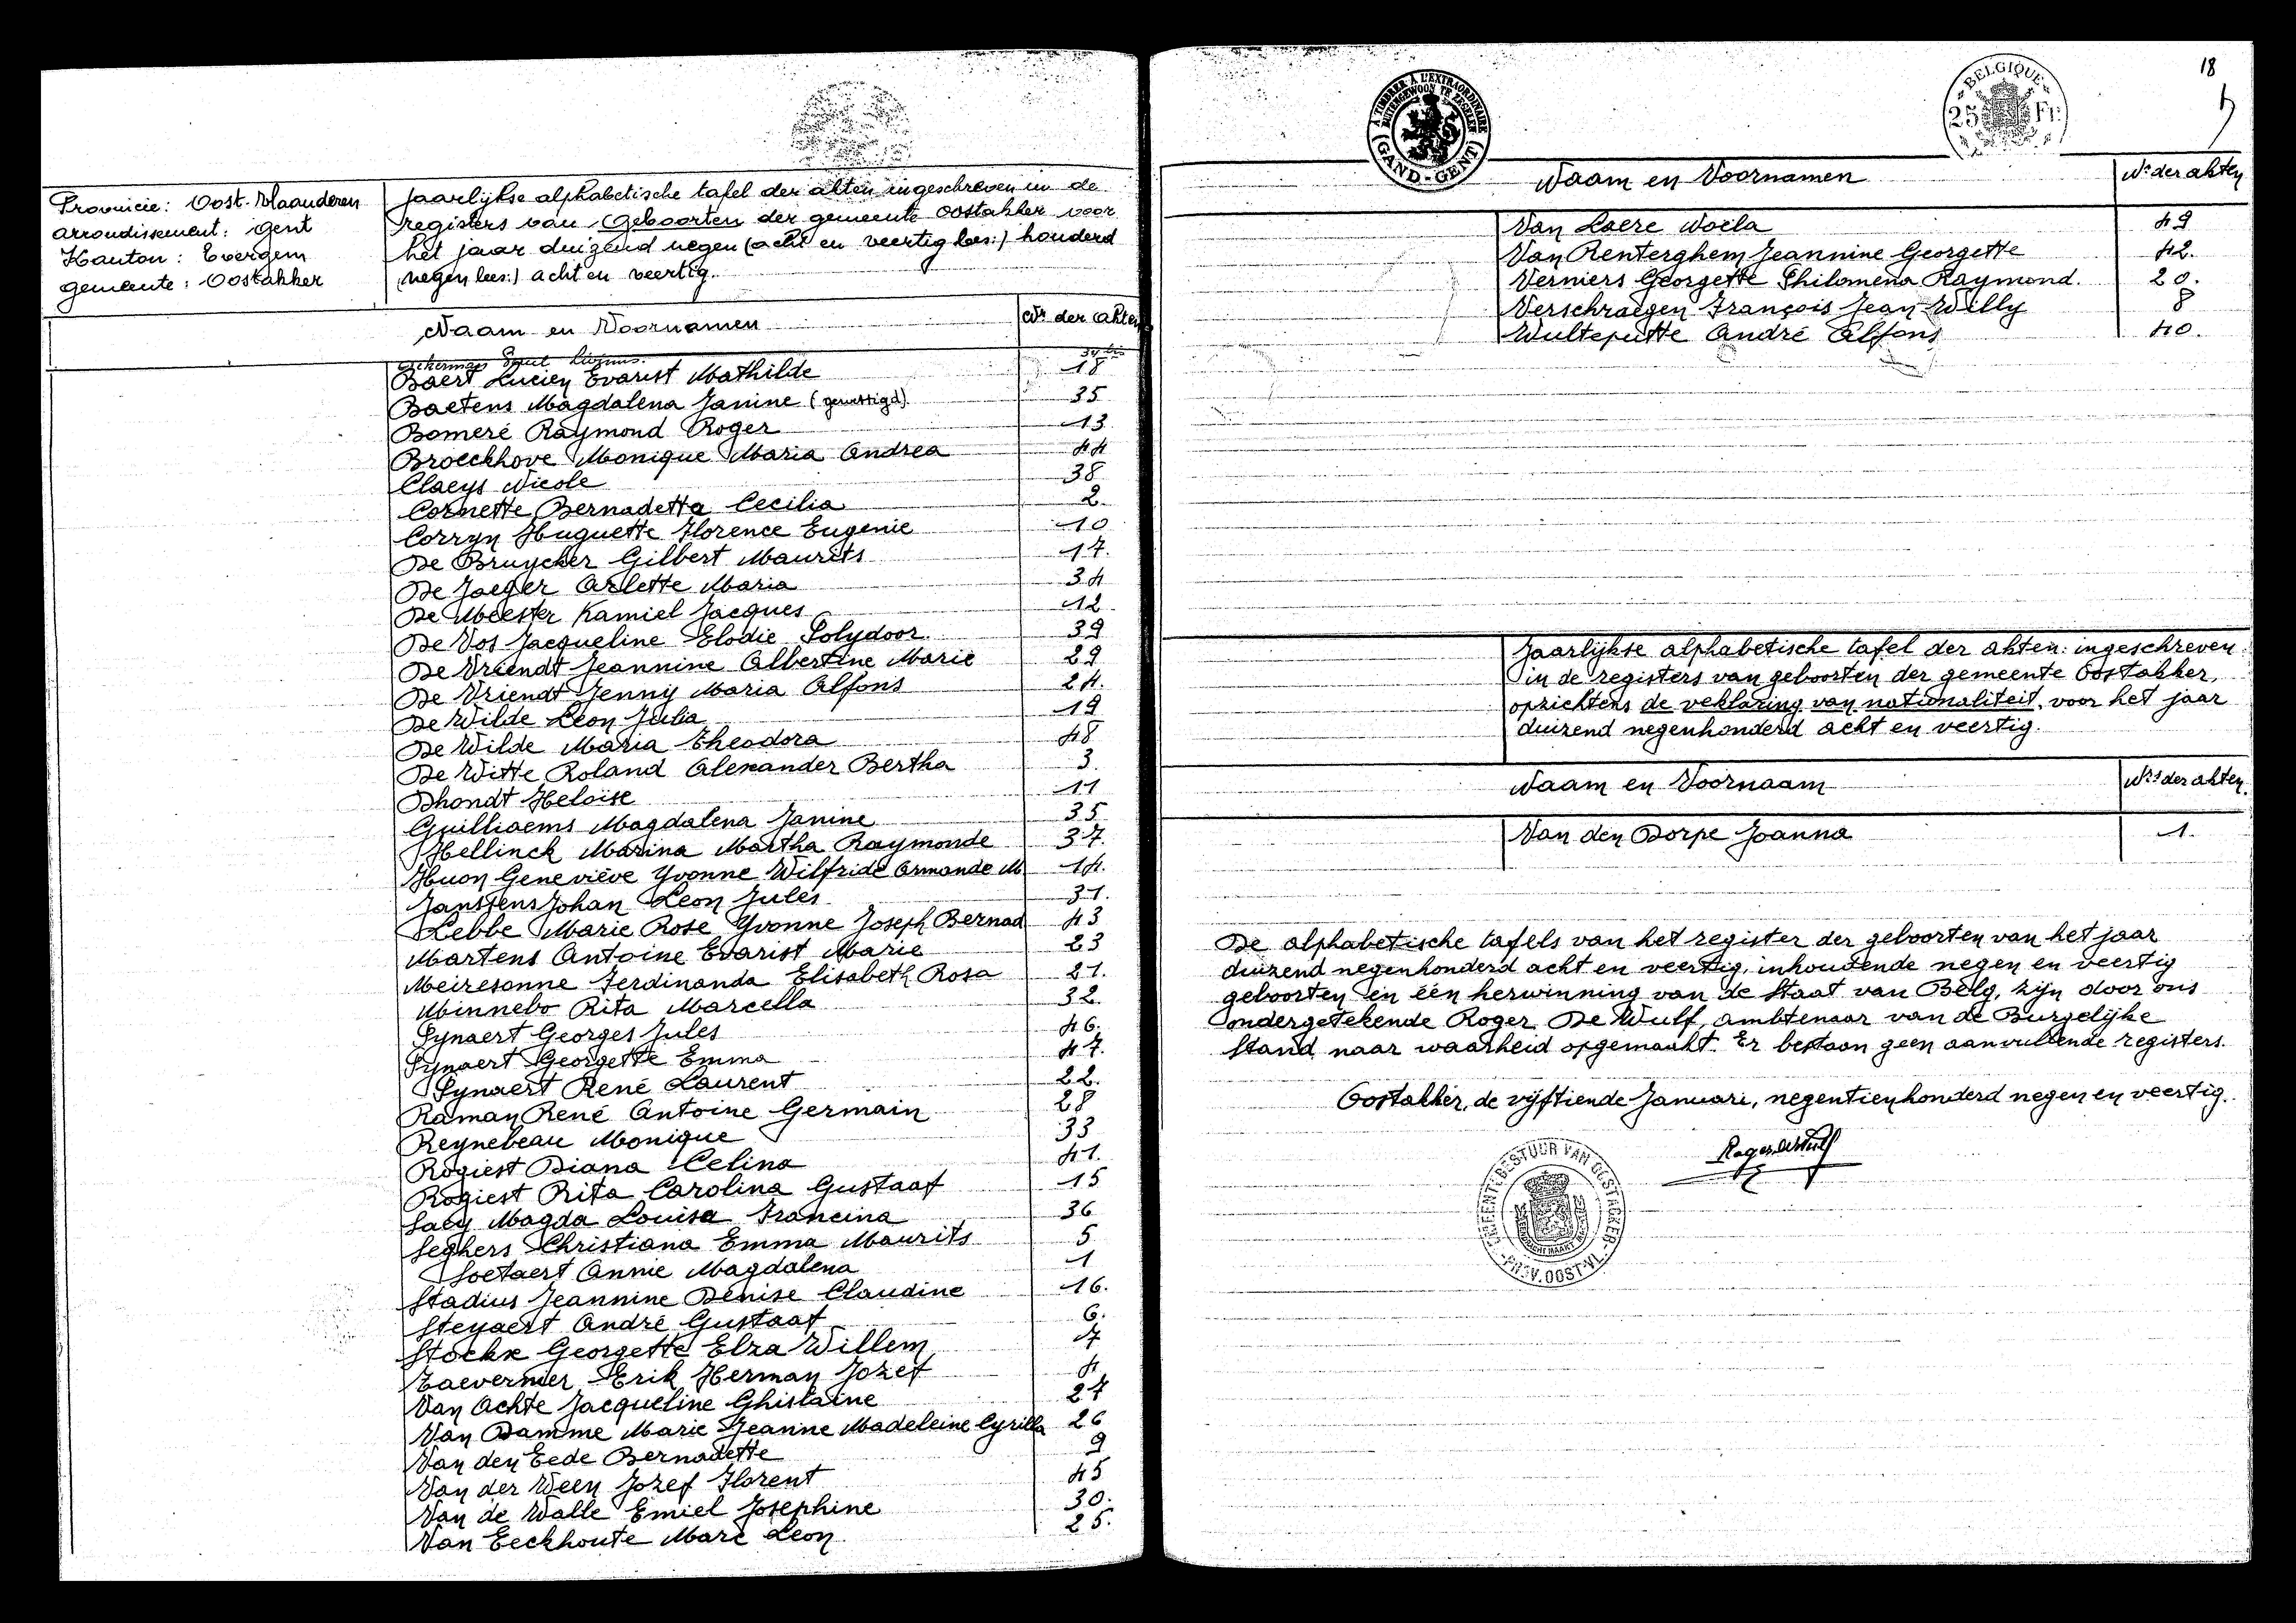 Provincie: Oost-Vlaanderen
arrondissement: Gent
Kanton: Evergem
gemeente: Oostakker
Jaarlijkse alphabetische tafel der akten ingeschreven in de
registers van Geboorten der gemeente Oostakker voor
het jaar duizend negen (acht en veertig lees:) honderd
(negen lees:) acht en veertig.
Naam en Voornamen Nrs der akten
34 bis
Baert Lucien Evarist Mathilde 18
Baetens Magdalena Janine (gewettigd) 35
Bomeré Raymond Roger 13
Broeckhove Monique Maria Andrea 44
Claeys Nicole 38
Cornette Bernadetta Cecilia 2
Corryn Huguette Florence Eugenie 10
De Bruycker Gilbert Maurits 17.
De Jaeger Arlette Maria 34
De Meester Kamiel Jacques 12
De Vos Jacqueline Elodie Polydoor 39
De Vriendt Jeannine Albertine Marie 29
De Vriendt Jenny Maria Alfons 24.
De Wilde Leon Julia 19
De Wilde Maria Theodora 48
De Witte Roland Alexander Bertha 3
Dhondt Heloise 11
Guilliaems Magdalena Janine 35
Hellinck Marina Martha Raymonde 37
Huon Geneviève Yvonne Wilfride Armande M 14.
Janssens Johan Leon Jules 31.
Lebbe Marie Rose Yvonne Joseph Bernad 43
Martens Antoine Evarist Marie 23
Meiresonne Ferdinanda Elisabeth Rosa 21.
Minnebo Rita Marcella 32
Pynaert Georges Jules 46.
Pynaert Georgette Emma 47.
Pynaert René Laurent 22.
Raman René Antoine Germain 28
Reynebeau Monique 33
Rogiest Diana Celina 41.
Rogiest Rita Carolina Gustaaf 15
Saey Magda Louisa Francina 36
Seghers Christiana Emma Maurits 5
Soetaert Annie Magdalena 1
Stadius Jeannine Denise Claudine 16.
Steyaert André Gustaaf 6.
Stockx Georgette Elza Willem 7
Taevernier Erik Herman Jozef 4
Van Achte Jacqueline Ghislaine 27
Van Damme Marie Jeanne Madeleine Cyrilla 26
Van den Eede Bernadette 9
Van der Veen Jozef Florent 45
Van de Walle Emiel Josephine 30.
Van Eeckhoute Marc Leon 25.
À TIMBRER À L'EXTRAORDINAIRE
BUITENGEWOON TE ZEGELEN
(GAND-GENT)
BELGIQUE
25 Fr.
18
Naam en Voornamen Nrs der akten
Van Laere Noëla 49
Van Renterghem Jeannine Georgette 42.
Verniers Georgette Philomena Raymond. 20.
Verschraegen François Jean Willy 8
Wulteputte André Alfons 40.
Jaarlijkse alphabetische tafel der akten ingeschreven
in de registers van geboorten der gemeente Oostakker,
opzichtens de veklaring van nationaliteit, voor het jaar
duizend negenhonderd acht en veertig.
Naam en Voornaam Nrs der akten.
Van den Dorpe Joanna 1.
De alphabetische tafels van het register der geboorten van het jaar
duizend negenhonderd acht en veertig, inhoudende negen en veertig
geboorten en één herwinning van de Staat van Belg, zijn door ons
ondergetekende Roger De Wulf, ambtenaar van de Burgelijke
stand naar waarheid opgemaakt. Er bestaan geen aanvullende registers.
Oostakker, de vijftiende Januari, negentienhonderd negen en veertig.
Roger De Wulf
GEMEENTEBESTUUR VAN OOSTACKER
PROV. OOST-VL.